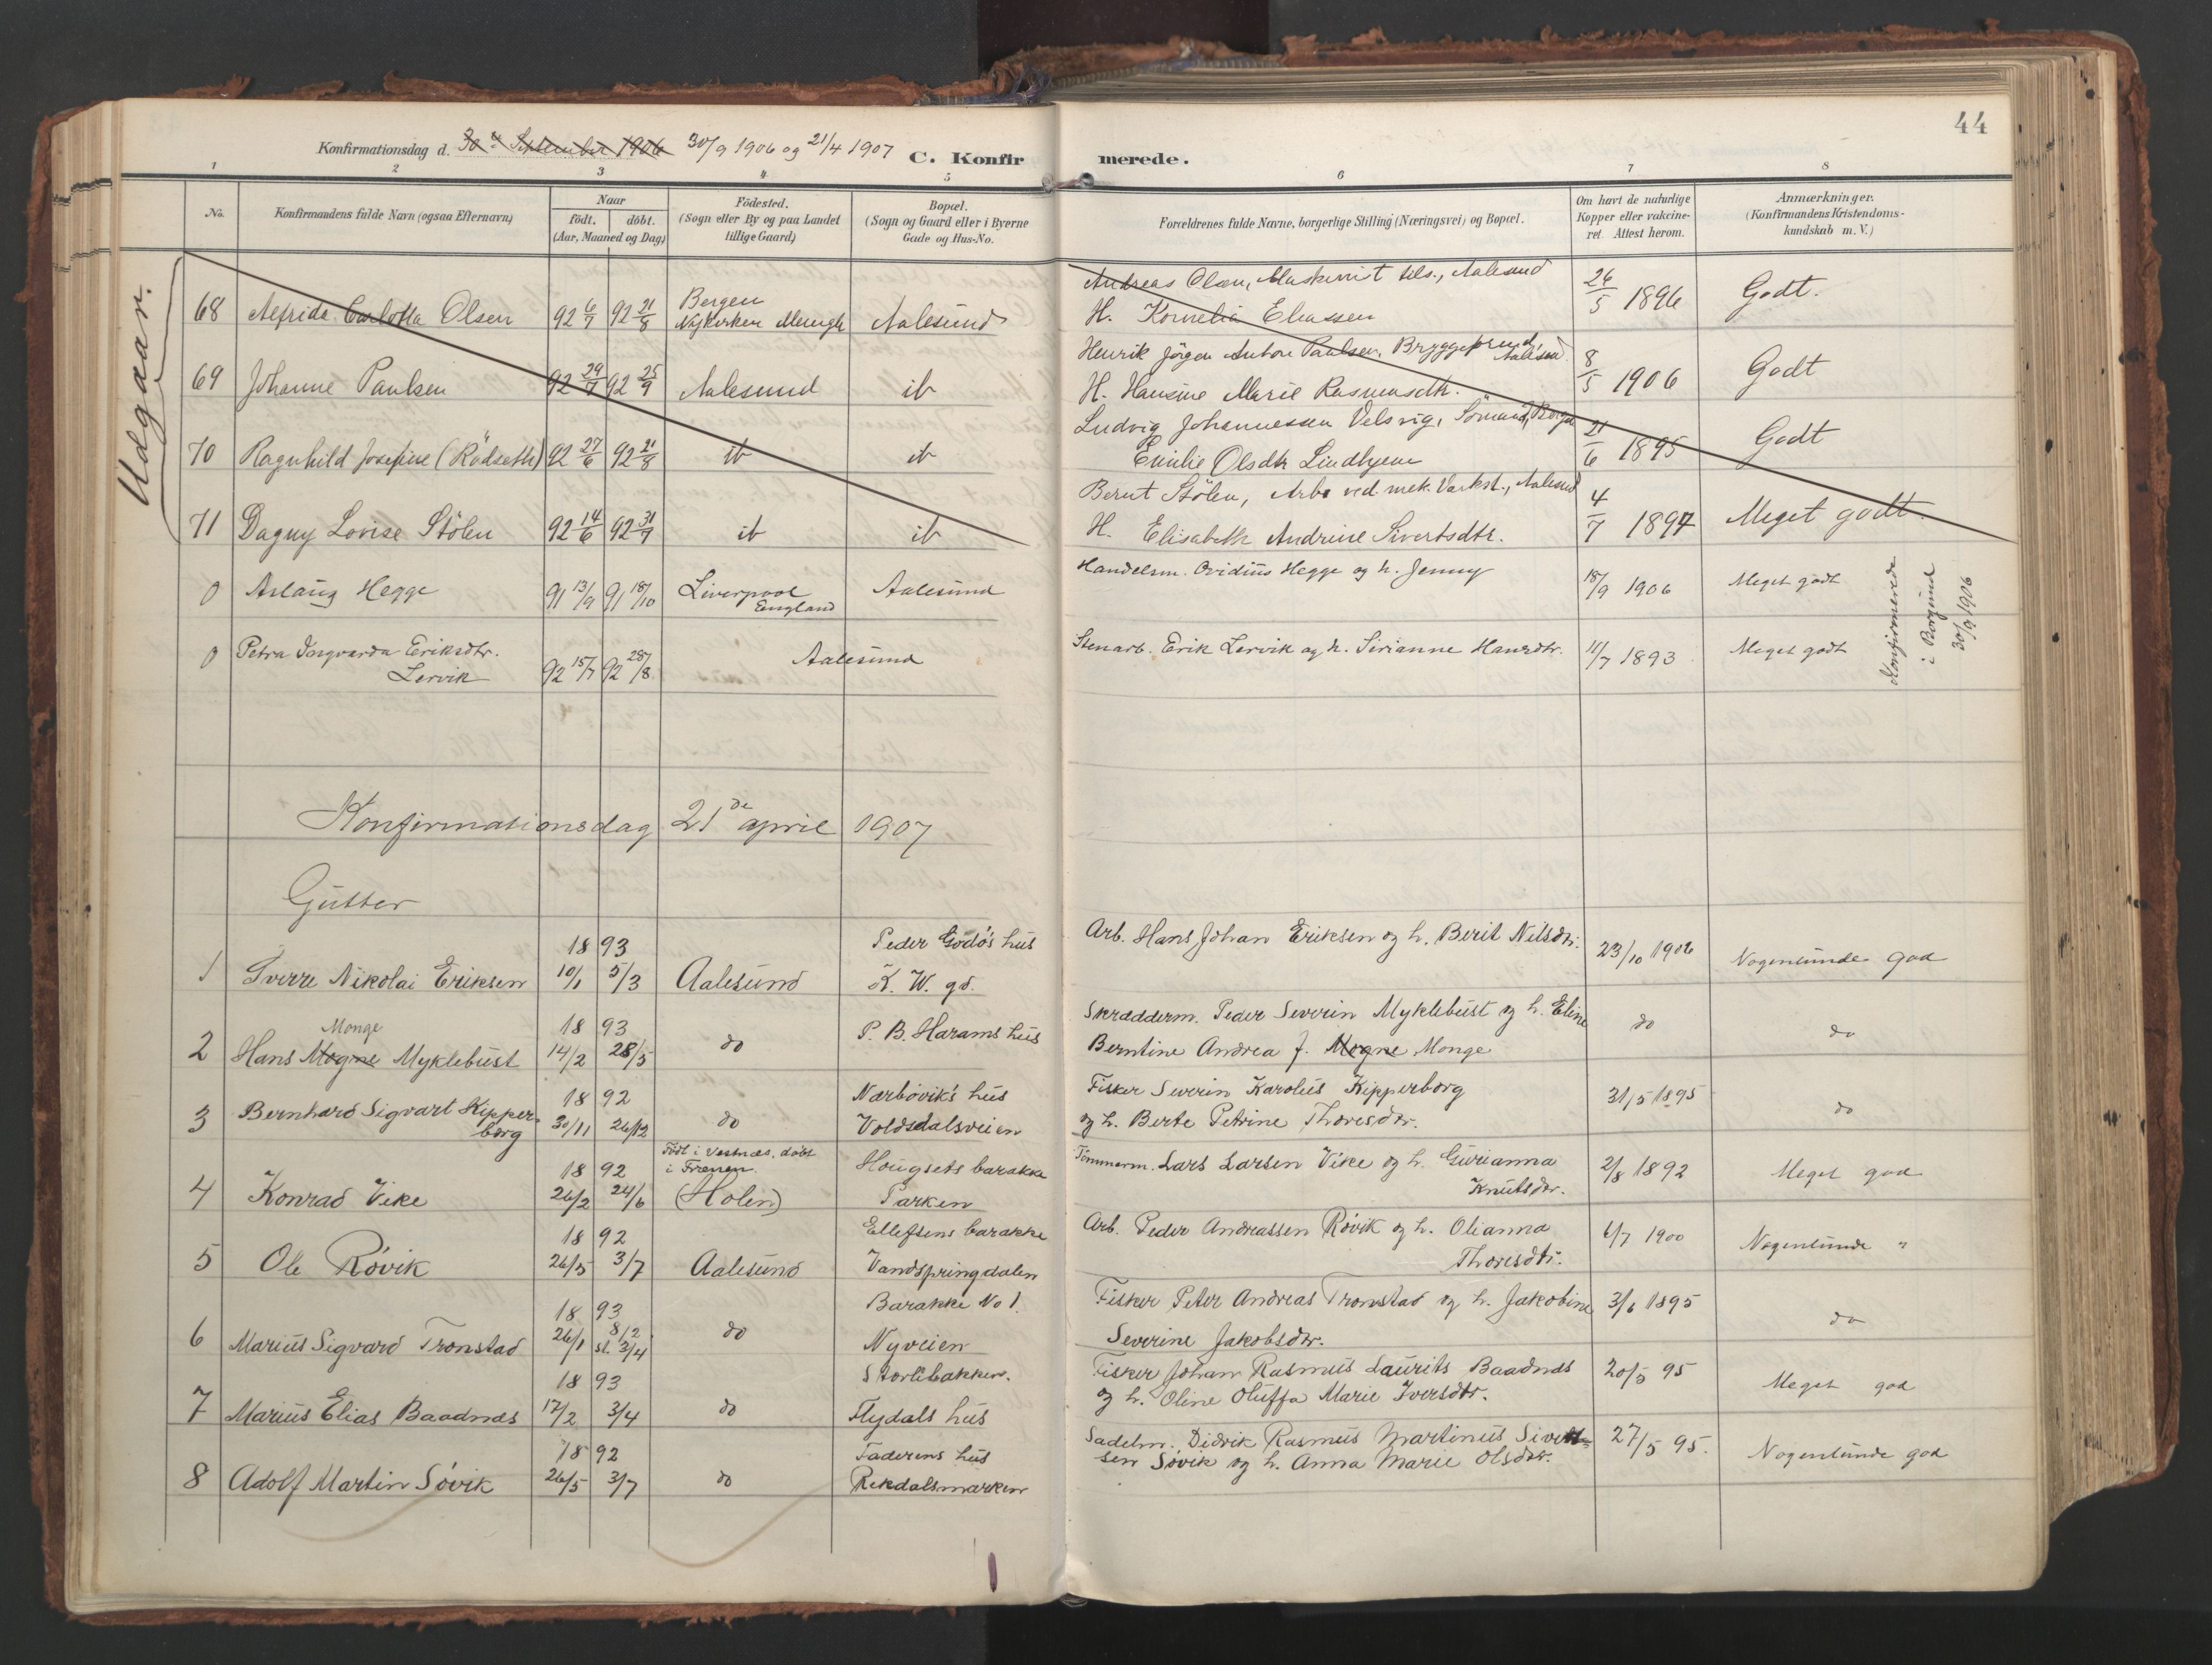 44
Konfirmationsdag d. 30 September 1906 30/9 1906 og 21/4 1907
C. Konfirmerede.
1 2 3 4 5 6 7 8
No.
Konfirmandens fulde Navn (ogsaa Efternavn)
Naar
födt. döbt.
(Aar, Maaned og Dag)
Födested.
(Sogn eller By og paa Landet
tillige Gaard)
Bopæl.
(Sogn og Gaard eller i Byerne
Gade og Hus-No.
Forældrenes fulde Navne, borgerlige Stilling (Næringsvei) og Bopæl.
Om havt de naturlige
Kopper eller vakcine-
ret. Attest herom.
Anmærkninger.
(Konfirmandens Kristendoms-
kundskab m. V.)
Udgaar.
68 Alfrida Carlotta Olsen 92 6/7 92 21/8 Bergen
Nykirken Menigh Aalesund
Andreas Olsen, Maskinist sils., Aalesund
H. Kornelia Eliassen
26/5 1896 Godt.
69 Johanne Paulsen 92 29/7 92 25/9 Aalesund ib
Henrik Jörgen Anton Paulsen, Bryggeformd
Aalesund.
H. Hansine Marie Rasmusdtr.
8/5 1906 Godt
70 Ragnhild Josefine (Rödseth) 92 27/6 92 21/8 ib ib
Ludvig Johannessen Velsvig, Sömand, Borgd
Emilie Olsdtr Lindhjem
21/6 1895 Godt
71 Dagny Lovise Stölen 92 14/6 92 31/9 ib ib
Bernt Stölen, Arbe ved mek. Værkst., Aalesund
H. Elisabeth Andrine Sivertsdtr.
4/7 1897 Meget godt.
0 Aslaug Hegge 91 13/9 91 18/10 Liverpool
England Aalesund
Handelsm. Ovidius Hegge og h. Jenny
18/9 1906 Meget godt
0 Petra Ingvarda Eriksdtr.
Lervik 92 15/7 92 28/8 Aalesund
Stenarb. Erik Lervik og h. Sirianne Hansdtr.
11/7 1893 Meget godt
Konfirmerede
i Borgund
30/9 1906
Konfirmationsdag 21de april 1907
Gutter
1 Sverre Nikolai Eriksen 18 93
10/1 5/3 Aalesund Peder Godö's hus
K. W. gd.
Arb. Hans Johan Eriksen og h. Berit Nilsdtr.
23/10 1906 Nogenlunde god
2 Hans Mogne Myklebust
Monge
18 93
14/2 28/5 do P. B. Harams hus
Skrædderm. Peder Severin Myklebust og h. Eline
Berntine Andrea f. Mogne Monge
do do
3 Bernhard Sigvart Kipper-
borg 18 92
30/11 26/12 do Nærbövik's hus
Voldsdalsveien
Fisker Severin Karolus Kipperborg
og h. Berte Petrine Thoresdtr.
31/5 1895 do
4 Konrad Vike 18 92
26/2 24/6 Födt i Vestnæs, döbt
i Frænen.
(Holen) Hougsets barakke
Parken
Tömmerm. Lars Larsen Vike og h. Gurianna
Knutsdtr.
2/8 1892 Meget god
5 Ole Rövik 18 92
26/5 3/7 Aalesund Ellefsens barakke
Vandspringdalen
Arb. Peder Andreassen Rövik og h. Olianna
Thoresdtr.
6/7 1900 Nogenlunde "
6 Marius Sigvard Tronstad 18 93
26/1 8/2
st. 3/4 do Barakke No 1.
Nyveien
Fisker Peter Andreas Tronstad og h. Jakobine
Severine Jakobsdtr.
3/6 1895 do
7 Marius Elias Baadnæs 18 93
17/2 3/4 do Storlibakken.
Flydals hus
Fisker Johan Rasmus Laurits Baadnæs
og h. Oline Oluffa Marie Iversdtr.
20/5 95 Meget god
8 Adolf Martin Sövik 18 92
26/5 3/7 do Faderens hus
Rekdalsmarken
Sadelm. Didrik Rasmus Martinus Sivert-
sen Sövik og h. Anna Marie Olsdtr.
27/5 95. Nogenlunde god